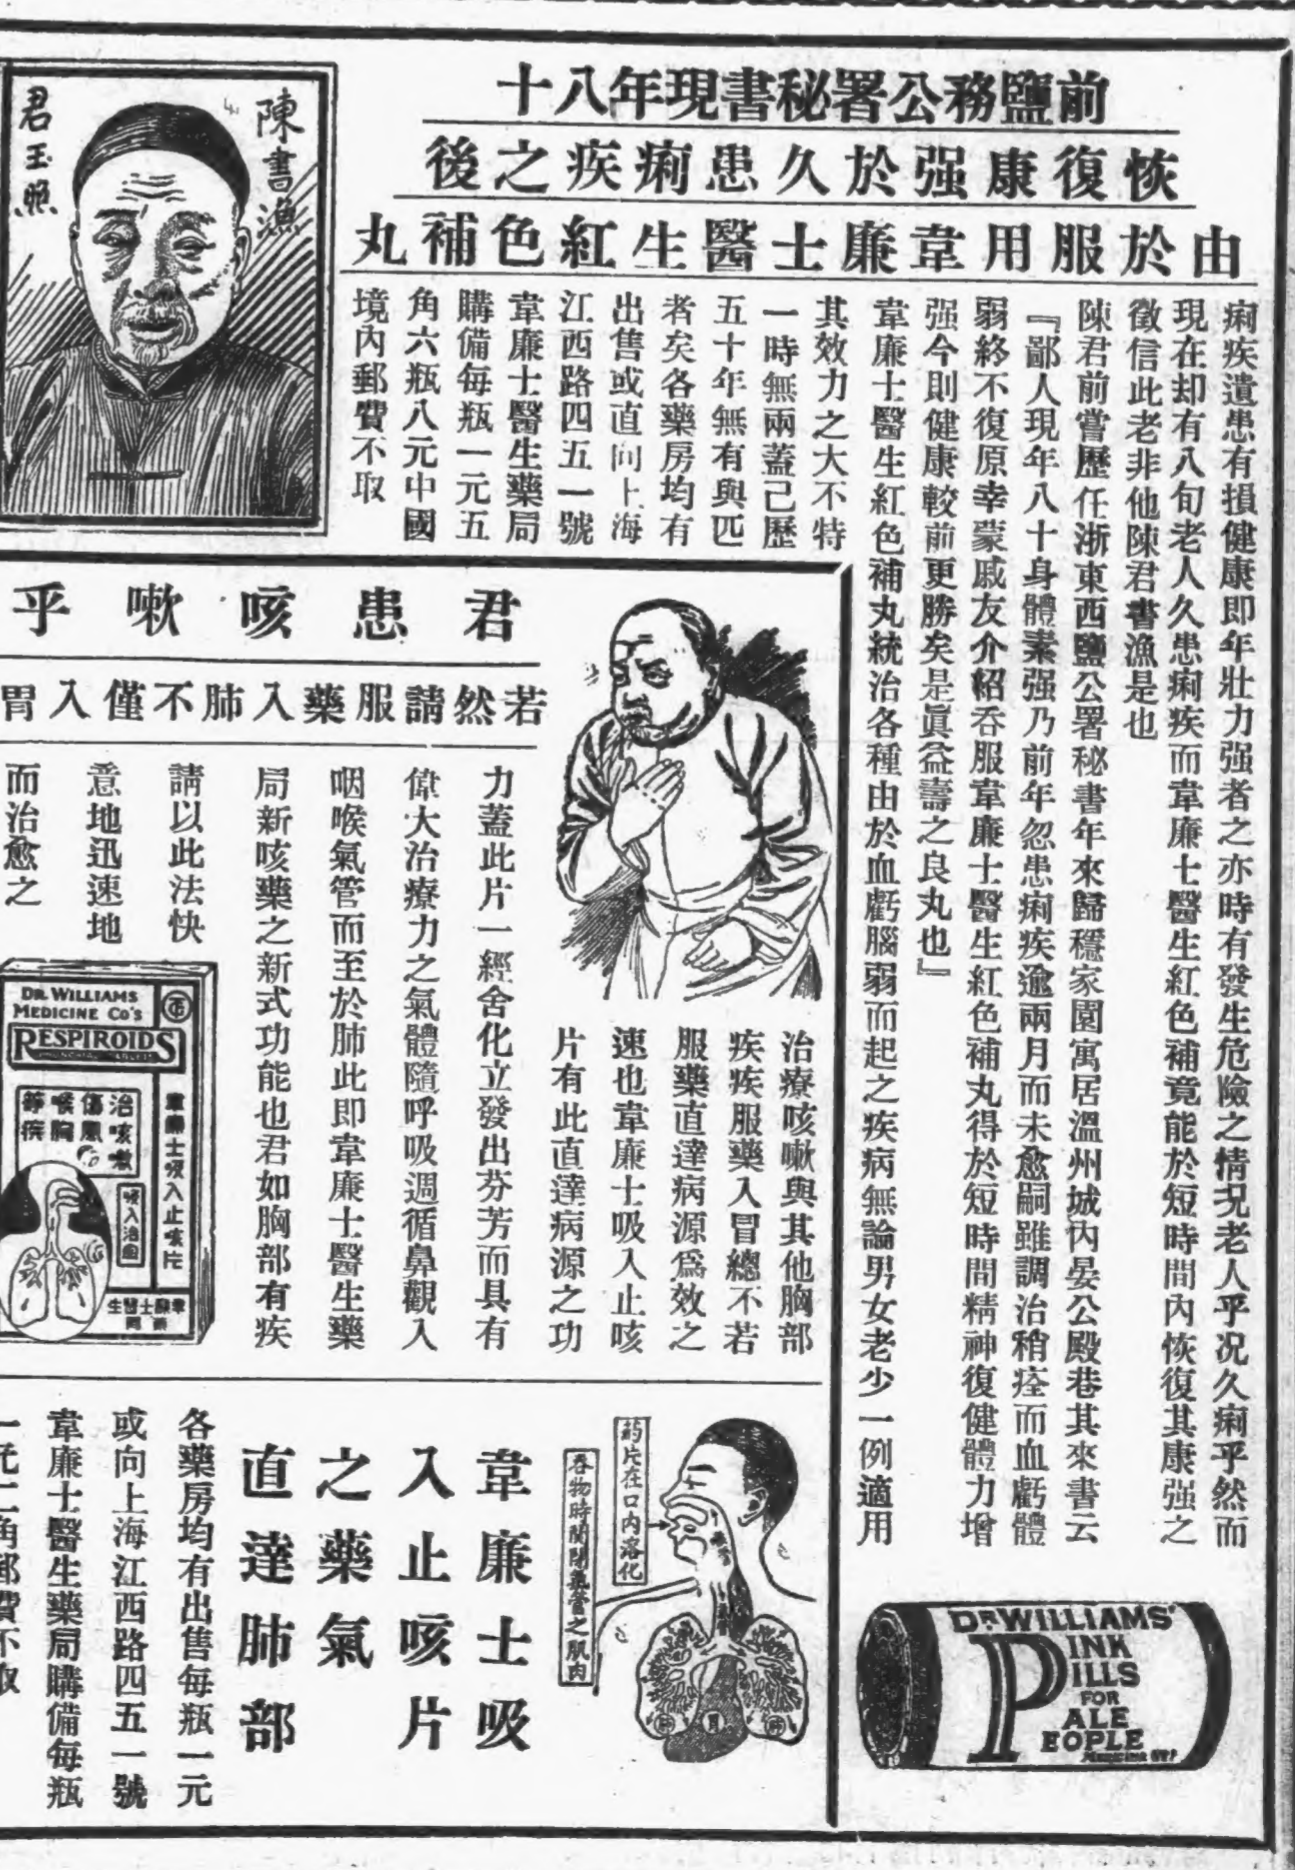 前鹽務公署秘書現年八十
恢復康强於久患痢疾之後
由於服用韋廉士醫生紅色補丸
痢疾遺患有損健康即年壯力强者之亦時有發生危險之情况老人乎况久痢乎然而
現在却有八旬老人久患痢疾而韋廉士醫生紅色補竟能於短時間內恢復其康强之
徵信此老非他陳君書漁是也
陳君前嘗歷任浙東西鹽公署秘書年來歸穩家園寓居溫州城內晏公殿巷其來書云
『鄙人現年八十身體素强乃前年忽患痢疾逾兩月而未愈嗣雖調治稍痊而血虧體
弱終不復原幸蒙戚友介紹吞服韋廉士醫生紅色補丸得於短時間精神復健體力增
强今則健康較前更勝矣是眞益壽之良丸也』
韋廉士醫生紅色補丸統治各種由於血虧腦弱而起之疾病無論男女老少一例適用
其效力之大不特
一時無兩蓋己歷
五十年無有與匹
者矣各藥房均有
出售或直向上海
江西路四五一號
韋廉士醫生藥局
購備每瓶一元五
角六瓶八元中國
境內郵費不取
陳書漁
君玉照
DR. WILLIAMS'
PINK
PILLS
FOR
PALE
PEOPLE
君患咳嗽乎
若然請服藥入肺不僅入胃
治療咳嗽與其他胸部
疾疾服藥入冒總不若
服藥直達病源爲效之
速也韋廉士吸入止咳
片有此直達病源之功
力蓋此片一經舍化立發出芬芳而具有
偉大治療力之氣體隨呼吸週循鼻觀入
咽喉氣管而至於肺此即韋廉士醫生藥
局新咳藥之新式功能也君如胸部有疾
請以此法快
意地迅速地
而治愈之
DR. WILLIAMS
MEDICINE CO'S
RESPIROIDS
韋廉士吸入止咳片
治咳嗽
傷風
喉胸
等疾
吸入治
韋廉士醫生
藥局
藥片在口內溶化
吞物時關閉氣管之肌肉
肺
胃
肺
韋廉士吸
入止咳片
之藥氣
直達肺部
各藥房均有出售每瓶一元
或向上海江西路四五一號
韋廉士醫生藥局購備每瓶
一元二角郵費不取